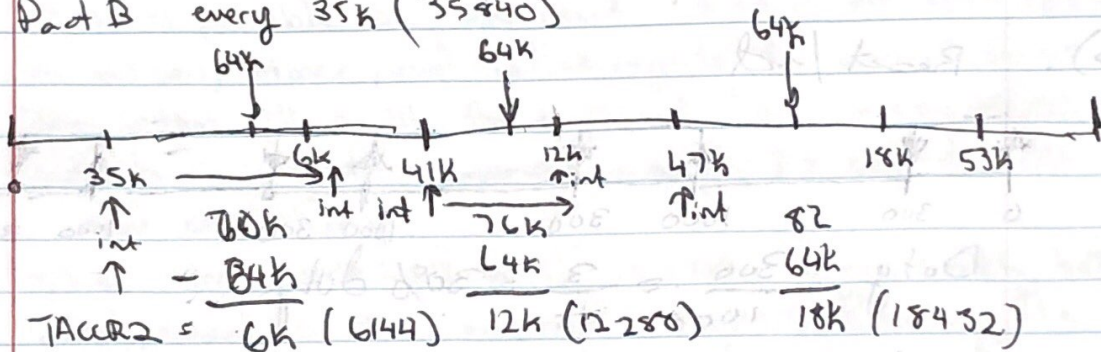 Part B every 35K (35840)
64K 64K 64K
6K 41K 12K 47K 18K 53K
35K int int int int
int 70K 76K 82
- 64K 64K 64K
TACCR2 = 6K (6144) 12K (12288) 18K (18432)